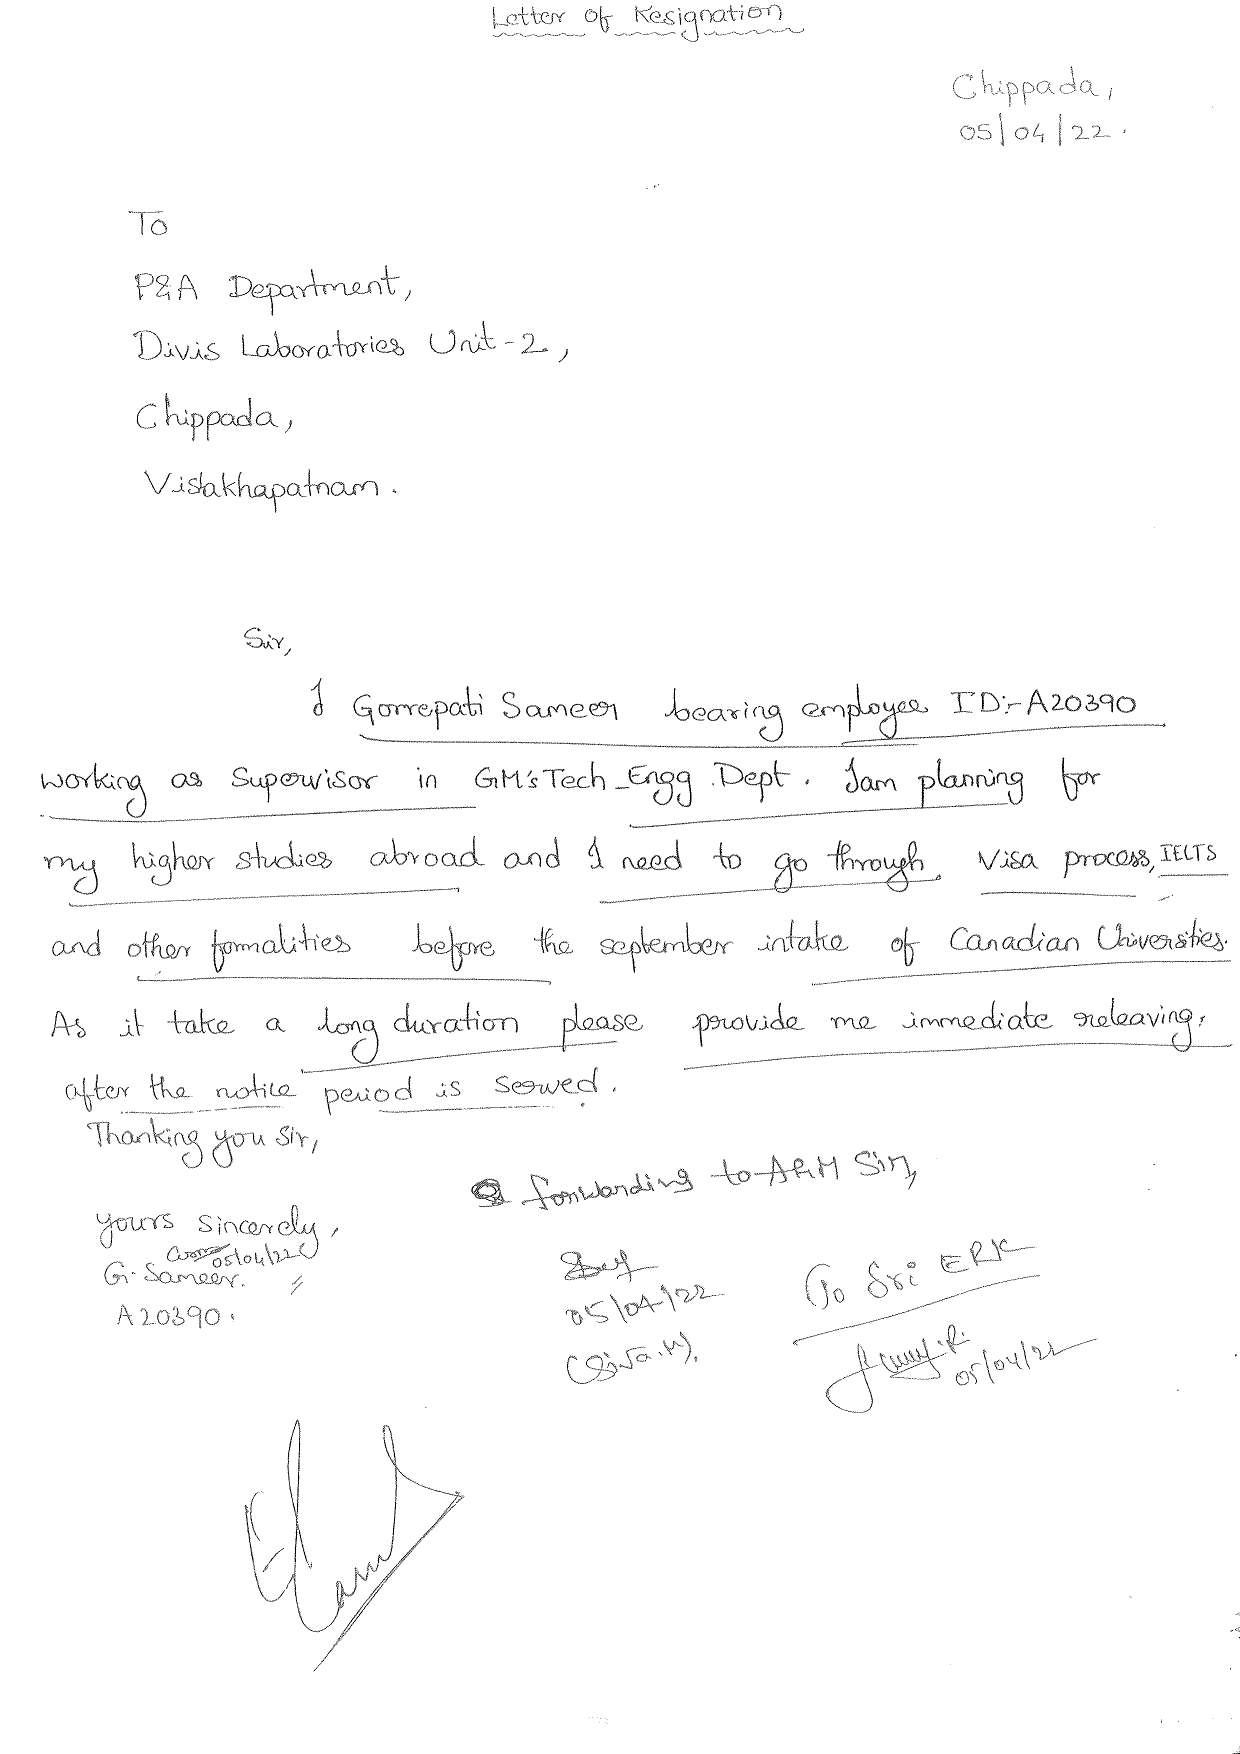 Letter of Resignation
Chippada,
05/04/22.
To
P&A Department,
Divis Laboratories Unit-2,
Chippada,
Visakhapatnam.
Sir,
I Gorrepati Sameer bearing employee ID:-A20390
working as Supervisor in GM's Tech_Engg.Dept. Iam planning for
my higher studies abroad and I need to go through Visa process, IELTS
and other formalities before the september intake of Canadian Universities.
As it take a long duration please provide me immediate releaving,
after the notice period is served.
Thanking you Sir,
forwarding to AGM Sir,
yours sincerely,
05/04/22
G. Sameer.
A20390.
05/04/22
(Siva.M).
To Sri ERK
05/04/22